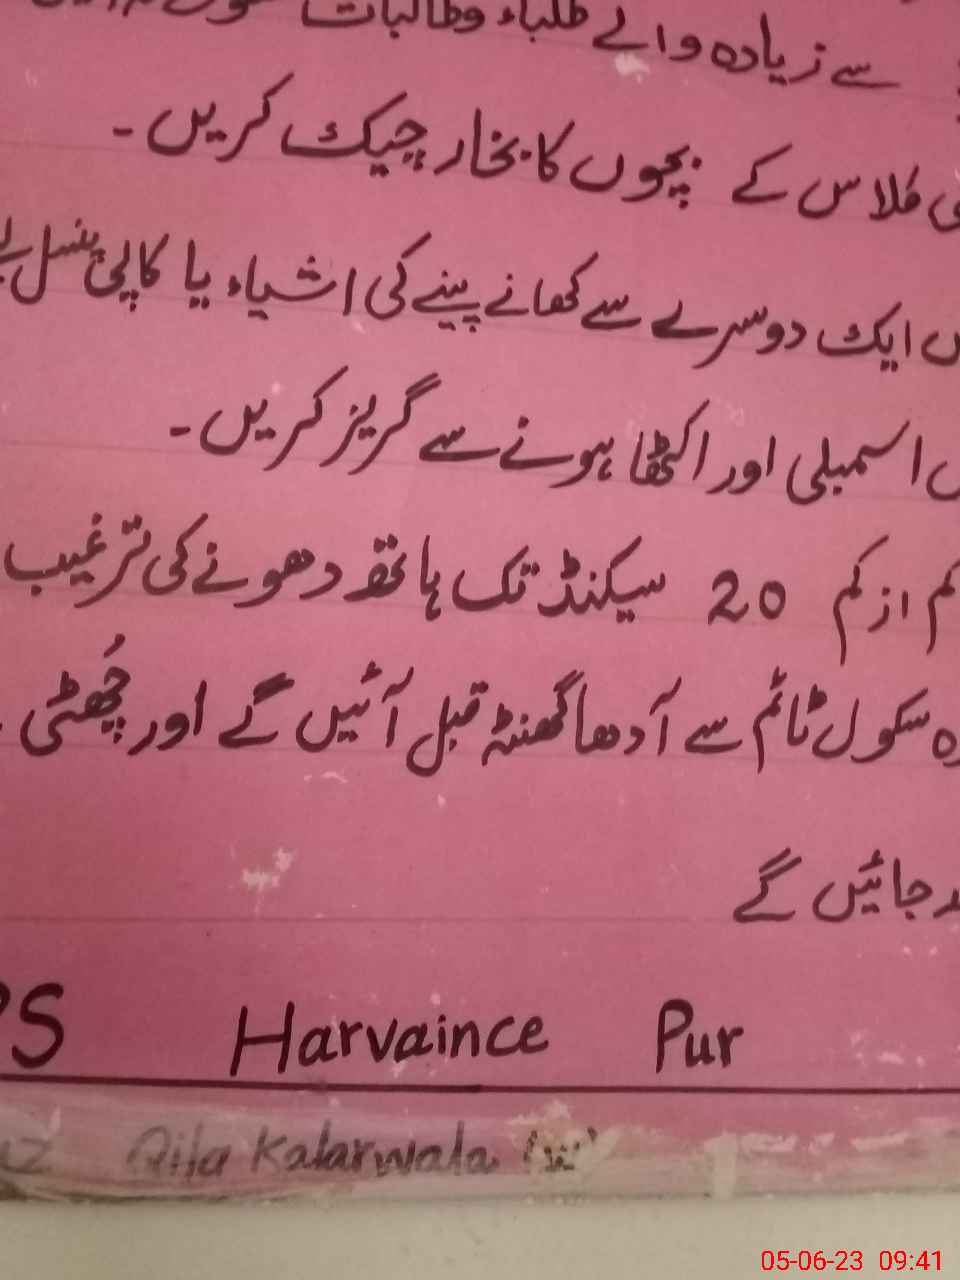 سے زیادہ والے طلباء وطالبات
کلاس کے بچوں کا بخار چیک کریں ۔
ایک دوسرے سے کھانے پینے کی اشیاء یا کاپی پنسل
اسمبلی اور اکٹھا ہونے سے گریز کریں ۔
کم از کم 20 سیکنڈ تک ہاتھ دھونے کی ترغیب
سکول ٹائم سے آدھا گھنٹہ قبل آئیں گے اور چُھٹی
جائیں گے
PS Harvaince Pur
Qila Kalarwala
05-06-23 09:41